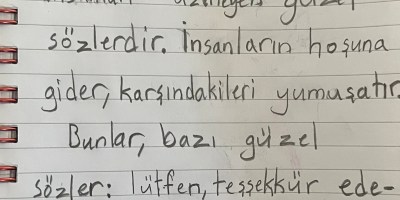 güzel
sözlerdir. İnsanların hoşuna
gider, karşındakileri yumuşatır.
Bunlar, bazı güzel
sözler: lütfen, teşekkür ede-